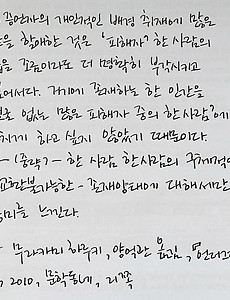 증언자의 개인적인 배경 취재에 많은
을 할애한 것은 '피해자' 한 사람의
을 조금이라도 더 명확히 부각시키고
어서다. 거기에 존재하는 한 인간을
없는 많은 피해자 중의 한 사람'에
치게 하고 싶지 않았기 때문이다.
- (중략) - 한 사람 한 사람의 구체적인
교환불가능한 - 존재양태에 대해서만
미를 느낀다.
무라카미 하루키, 양억관 옮김, 『언더
, 2010, 문학동네, 리쪽